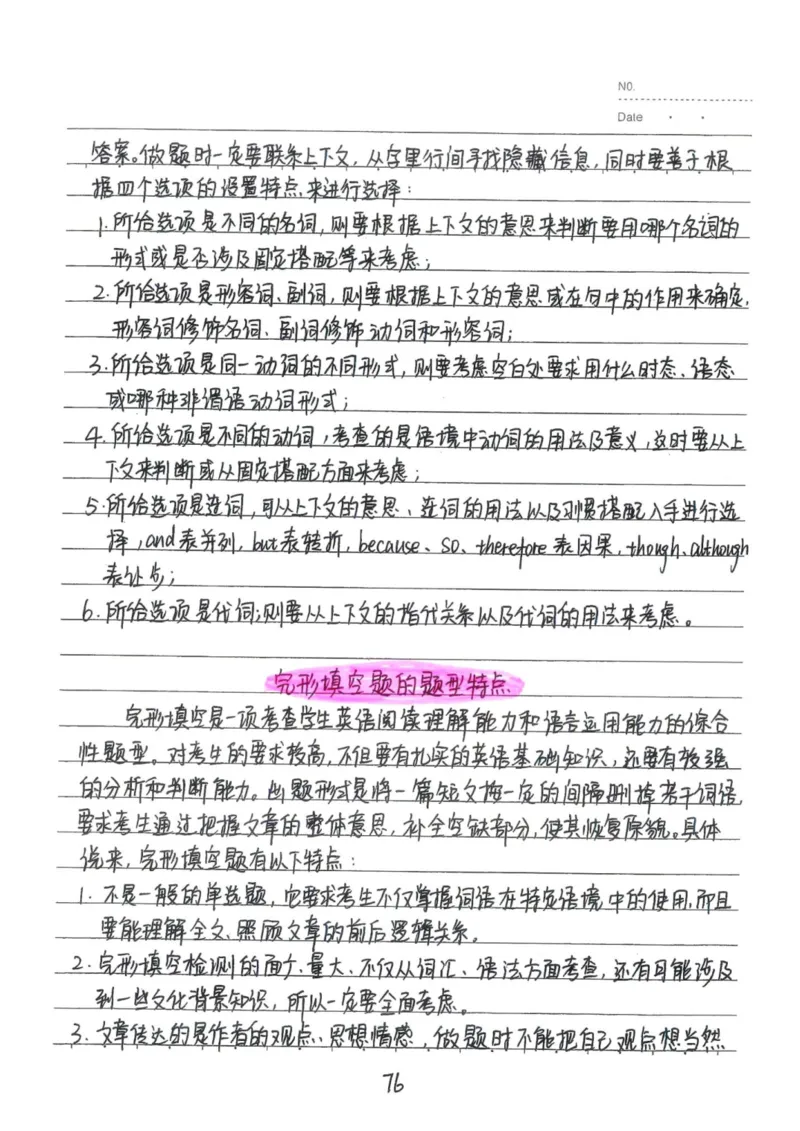 NO.
Date
答案。做题时一定要联系上下文，从字里行间寻找隐藏信息，同时要善于根
据四个选项的设置特点来进行选择：
1.所给选项是不同的名词，则要根据上下文的意思来判断要用哪个名词的
形式或是否涉及固定搭配等来考虑；
2.所给选项是形容词、副词，则要根据上下文的意思或在句中的作用来确定，
形容词修饰名词、副词修饰动词和形容词；
3.所给选项是同一动词的不同形式，则要考虑空白处要求用什么时态、语态
或哪种非谓语动词形式；
4.所给选项是不同的动词，考查的是语境中动词的用法及意义，这时要从上
下文来判断或从固定搭配方面来考虑；
5.所给选项是连词，可从上下文的意思、连词的用法以及习惯搭配入手进行选
择，and表并列，but表转折，because、so、therefore表因果，though、although
表让步；
6.所给选项是代词；则要从上下文的指代关系以及代词的用法来考虑。
完形填空题的题型特点
完形填空是一项考查学生英语阅读理解能力和语言运用能力的综合
性题型。对考生的要求较高，不但要有扎实的英语基础知识，还要有较强
的分析和判断能力。出题形式是将一篇短文按一定的间隔删掉若干词语，
要求考生通过把握文章的整体意思，补全空缺部分，使其恢复原貌。具体
说来，完形填空题有以下特点：
1.不是一般的单选题，它要求考生不仅掌握词语在特定语境中的使用，而且
要能理解全文、照顾文章的前后逻辑关系。
2.完形填空检测的面广、量大、不仅从词汇、语法方面考查，还有可能涉及
到一些文化背景知识，所以一定要全面考虑。
3.文章传达的是作者的观点、思想情感，做题时不能把自己观点想当然
76